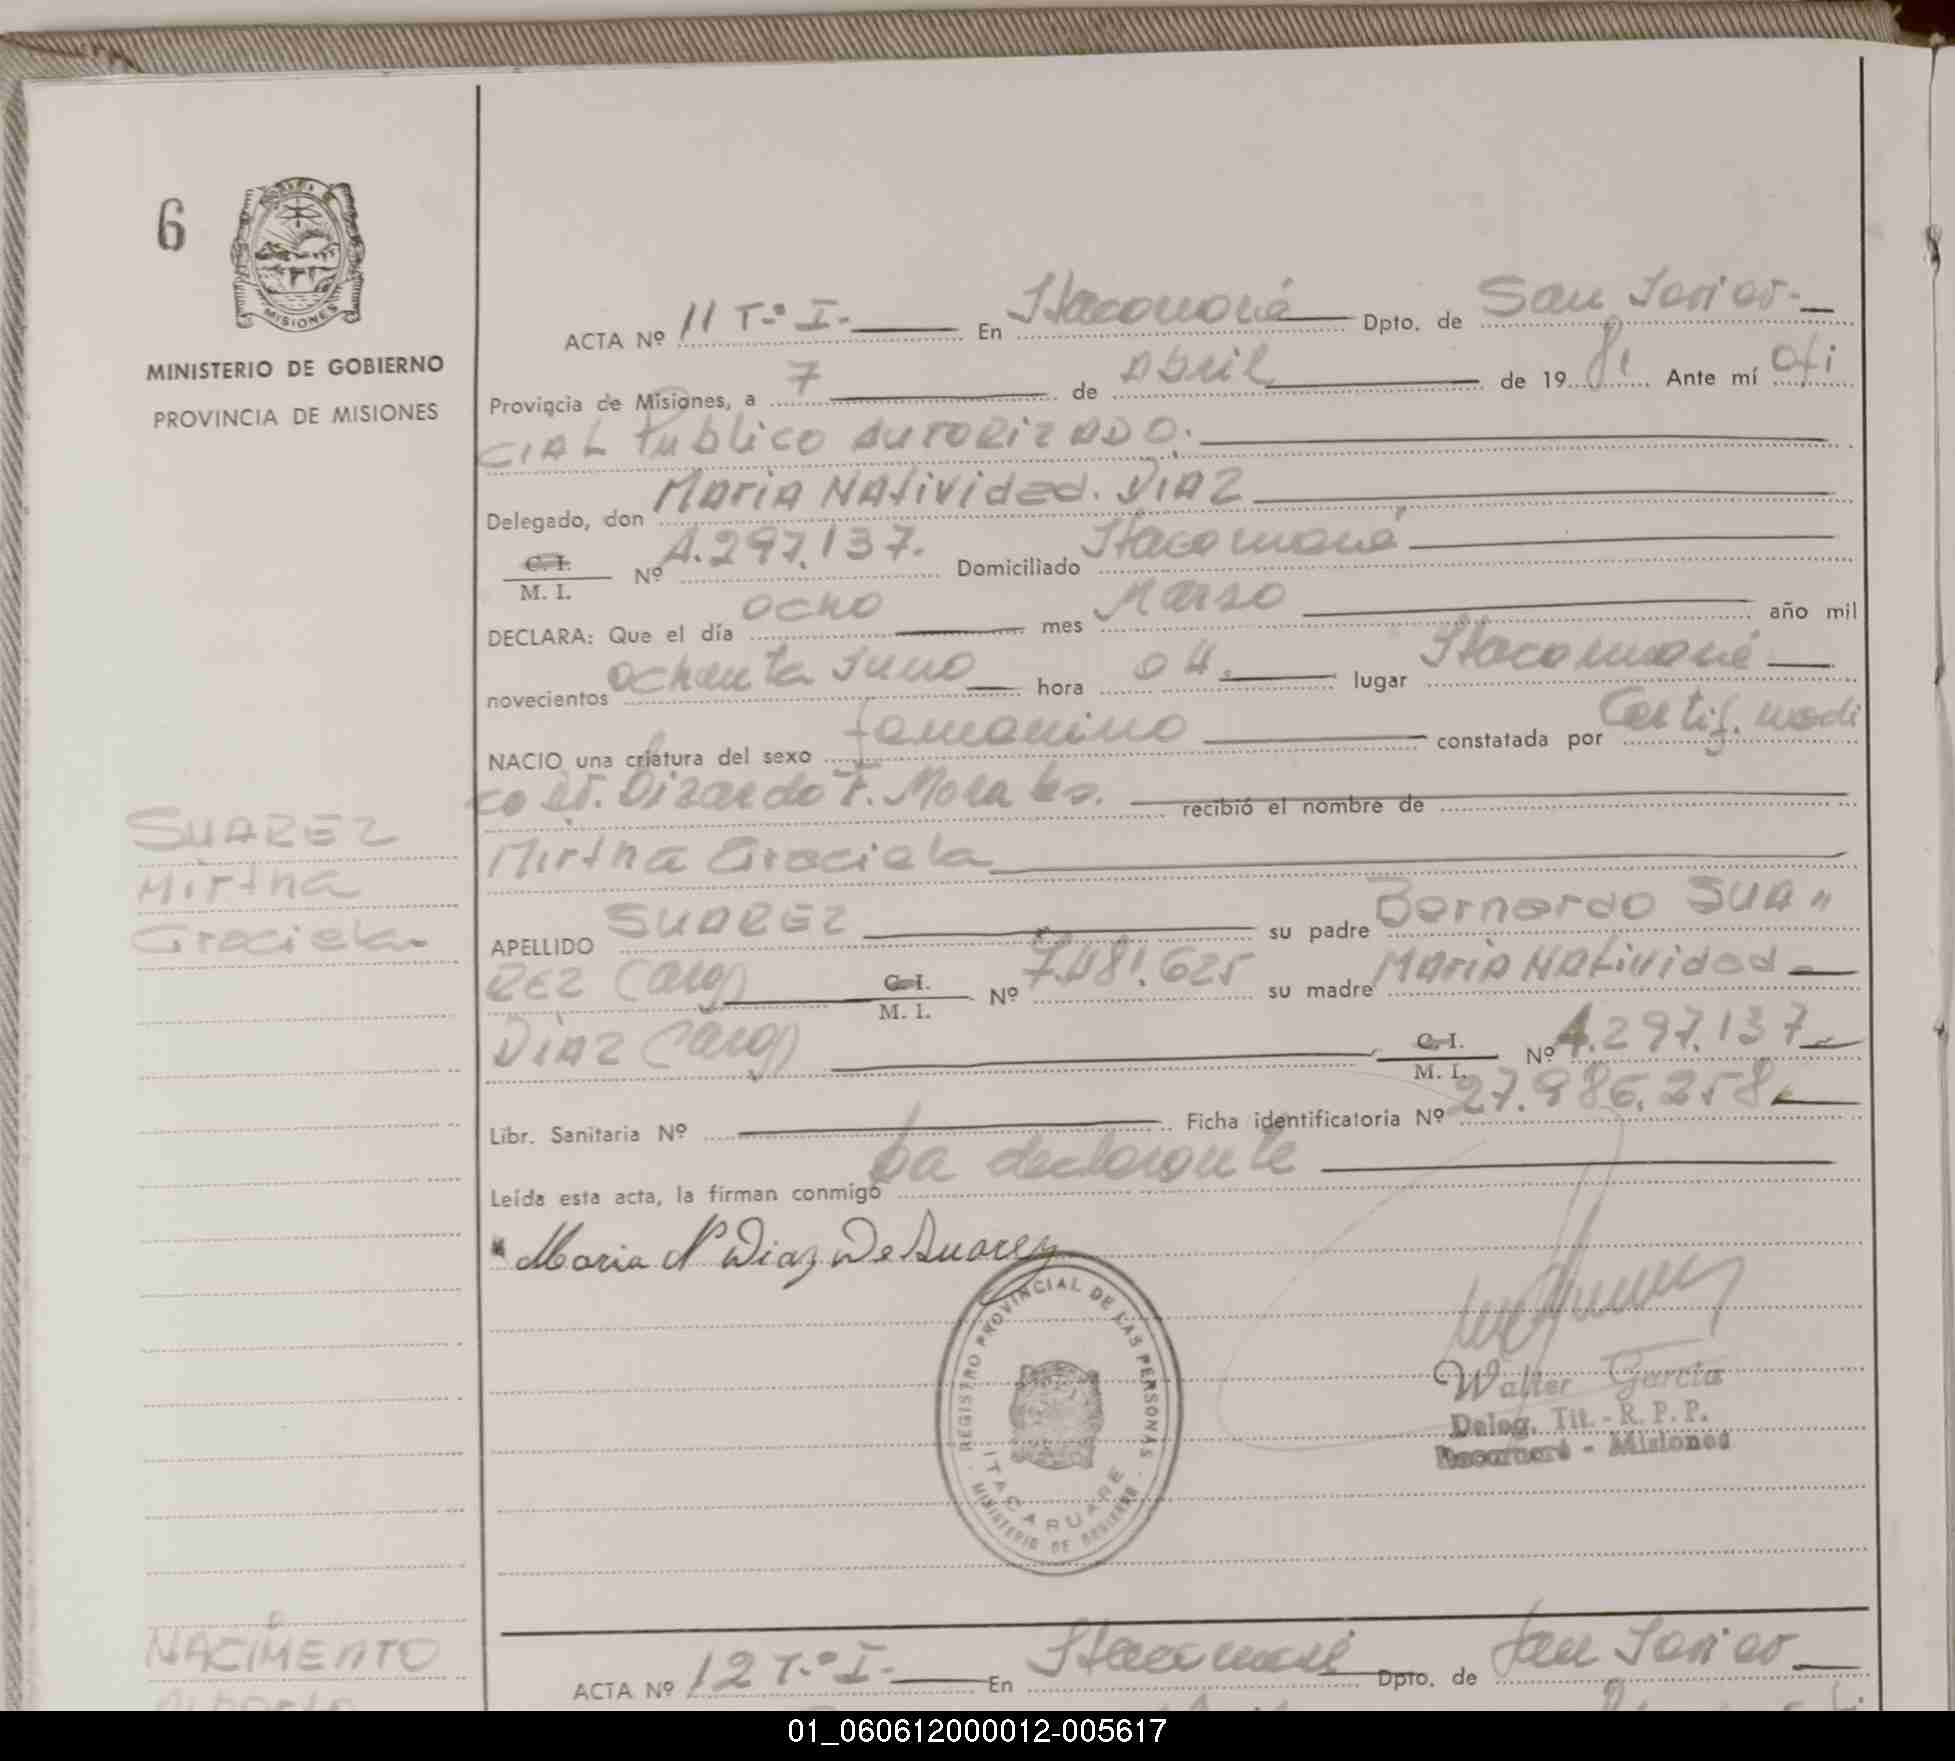 6
MISIONES
MINISTERIO DE GOBIERNO
PROVINCIA DE MISIONES
ACTA Nº 11 T.º I. En Itacaruaré Dpto. de San Javier
Provincia de Misiones, a 7 de Abril de 1981 Ante mí Ofi
CIAL Publico AUTORIZADO.
Delegado, don MARIA NAtividad. DIAZ
C. I. / M. I. Nº 4.297.137. Domiciliado Itacaruaré
DECLARA: Que el día ocho mes Marso año mil
novecientos ochenta iuno hora 04. lugar Itacaruaré
NACIO una criatura del sexo femenino constatada por Certif. medi
co Dr. F. Morales. recibió el nombre de
SUAREZ
Mirtha
Graciela
Mirtha Graciela
APELLIDO SUAREZ su padre Bernardo SUA"
REZ (arg) C. I. / M. I. Nº 7.481.625 su madre MARIA NAtividad
DIAZ (arg) C. I. / M. I. Nº 4.297.137
Libr. Sanitaria Nº Ficha identificatoria Nº 27.986.258
Leída esta acta, la firman conmigo La declarante
Maria N Diaz De Suarez
REGISTRO PROVINCIAL DE LAS PERSONAS
ITACARUARE
MINISTERIO DE GOBIERNO
Walter García
Deleg. Tit. - R. P. P.
Itacaruaré - Misiones
NACIMENTO
ACTA Nº 12 T.º I. En Itacaruaré Dpto. de San Javier
01_060612000012-005617